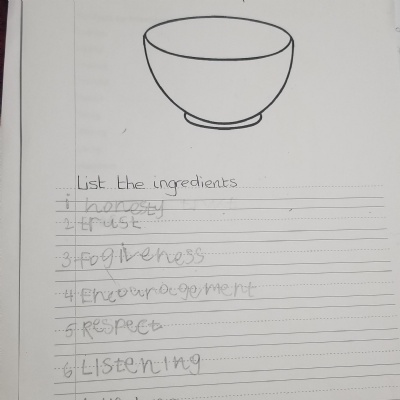 List the ingredients
1 honesty
2 trust
3 Fogiveness
4 Encouragement
5 Respect
6 Listening